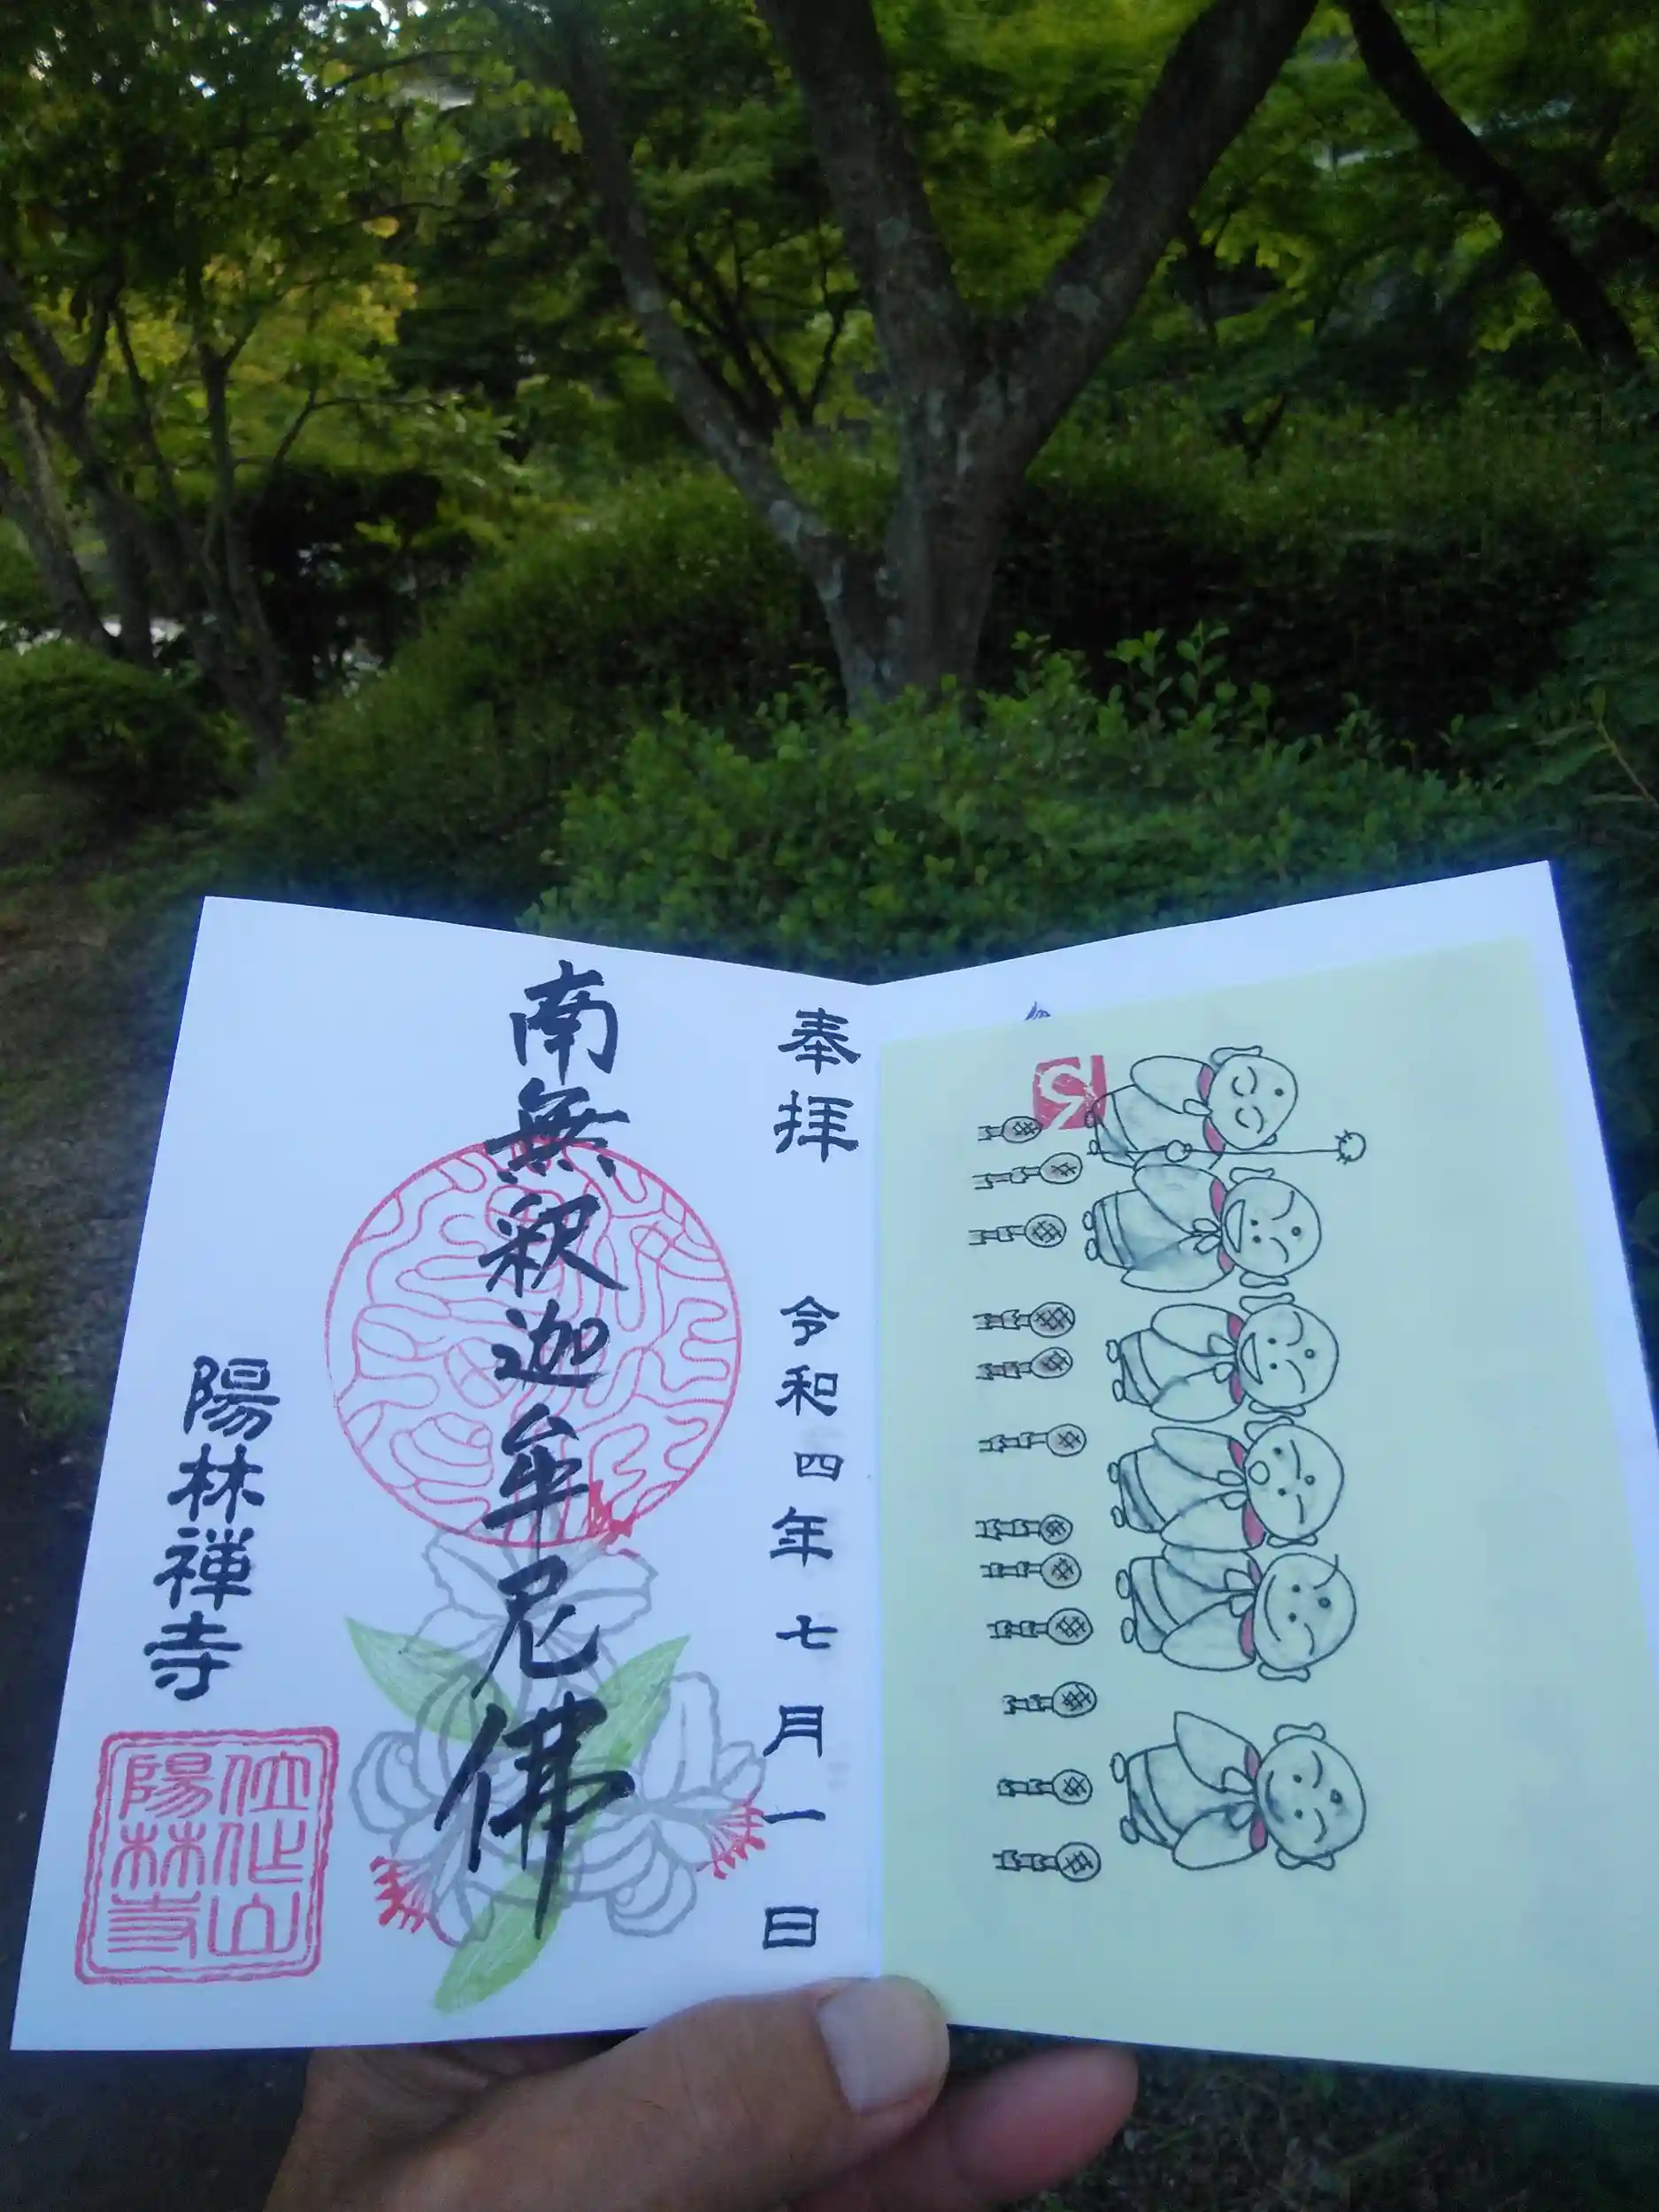 奉拝
令和四年七月一日
南無釈迦牟尼佛
陽林禅寺
陽林寺